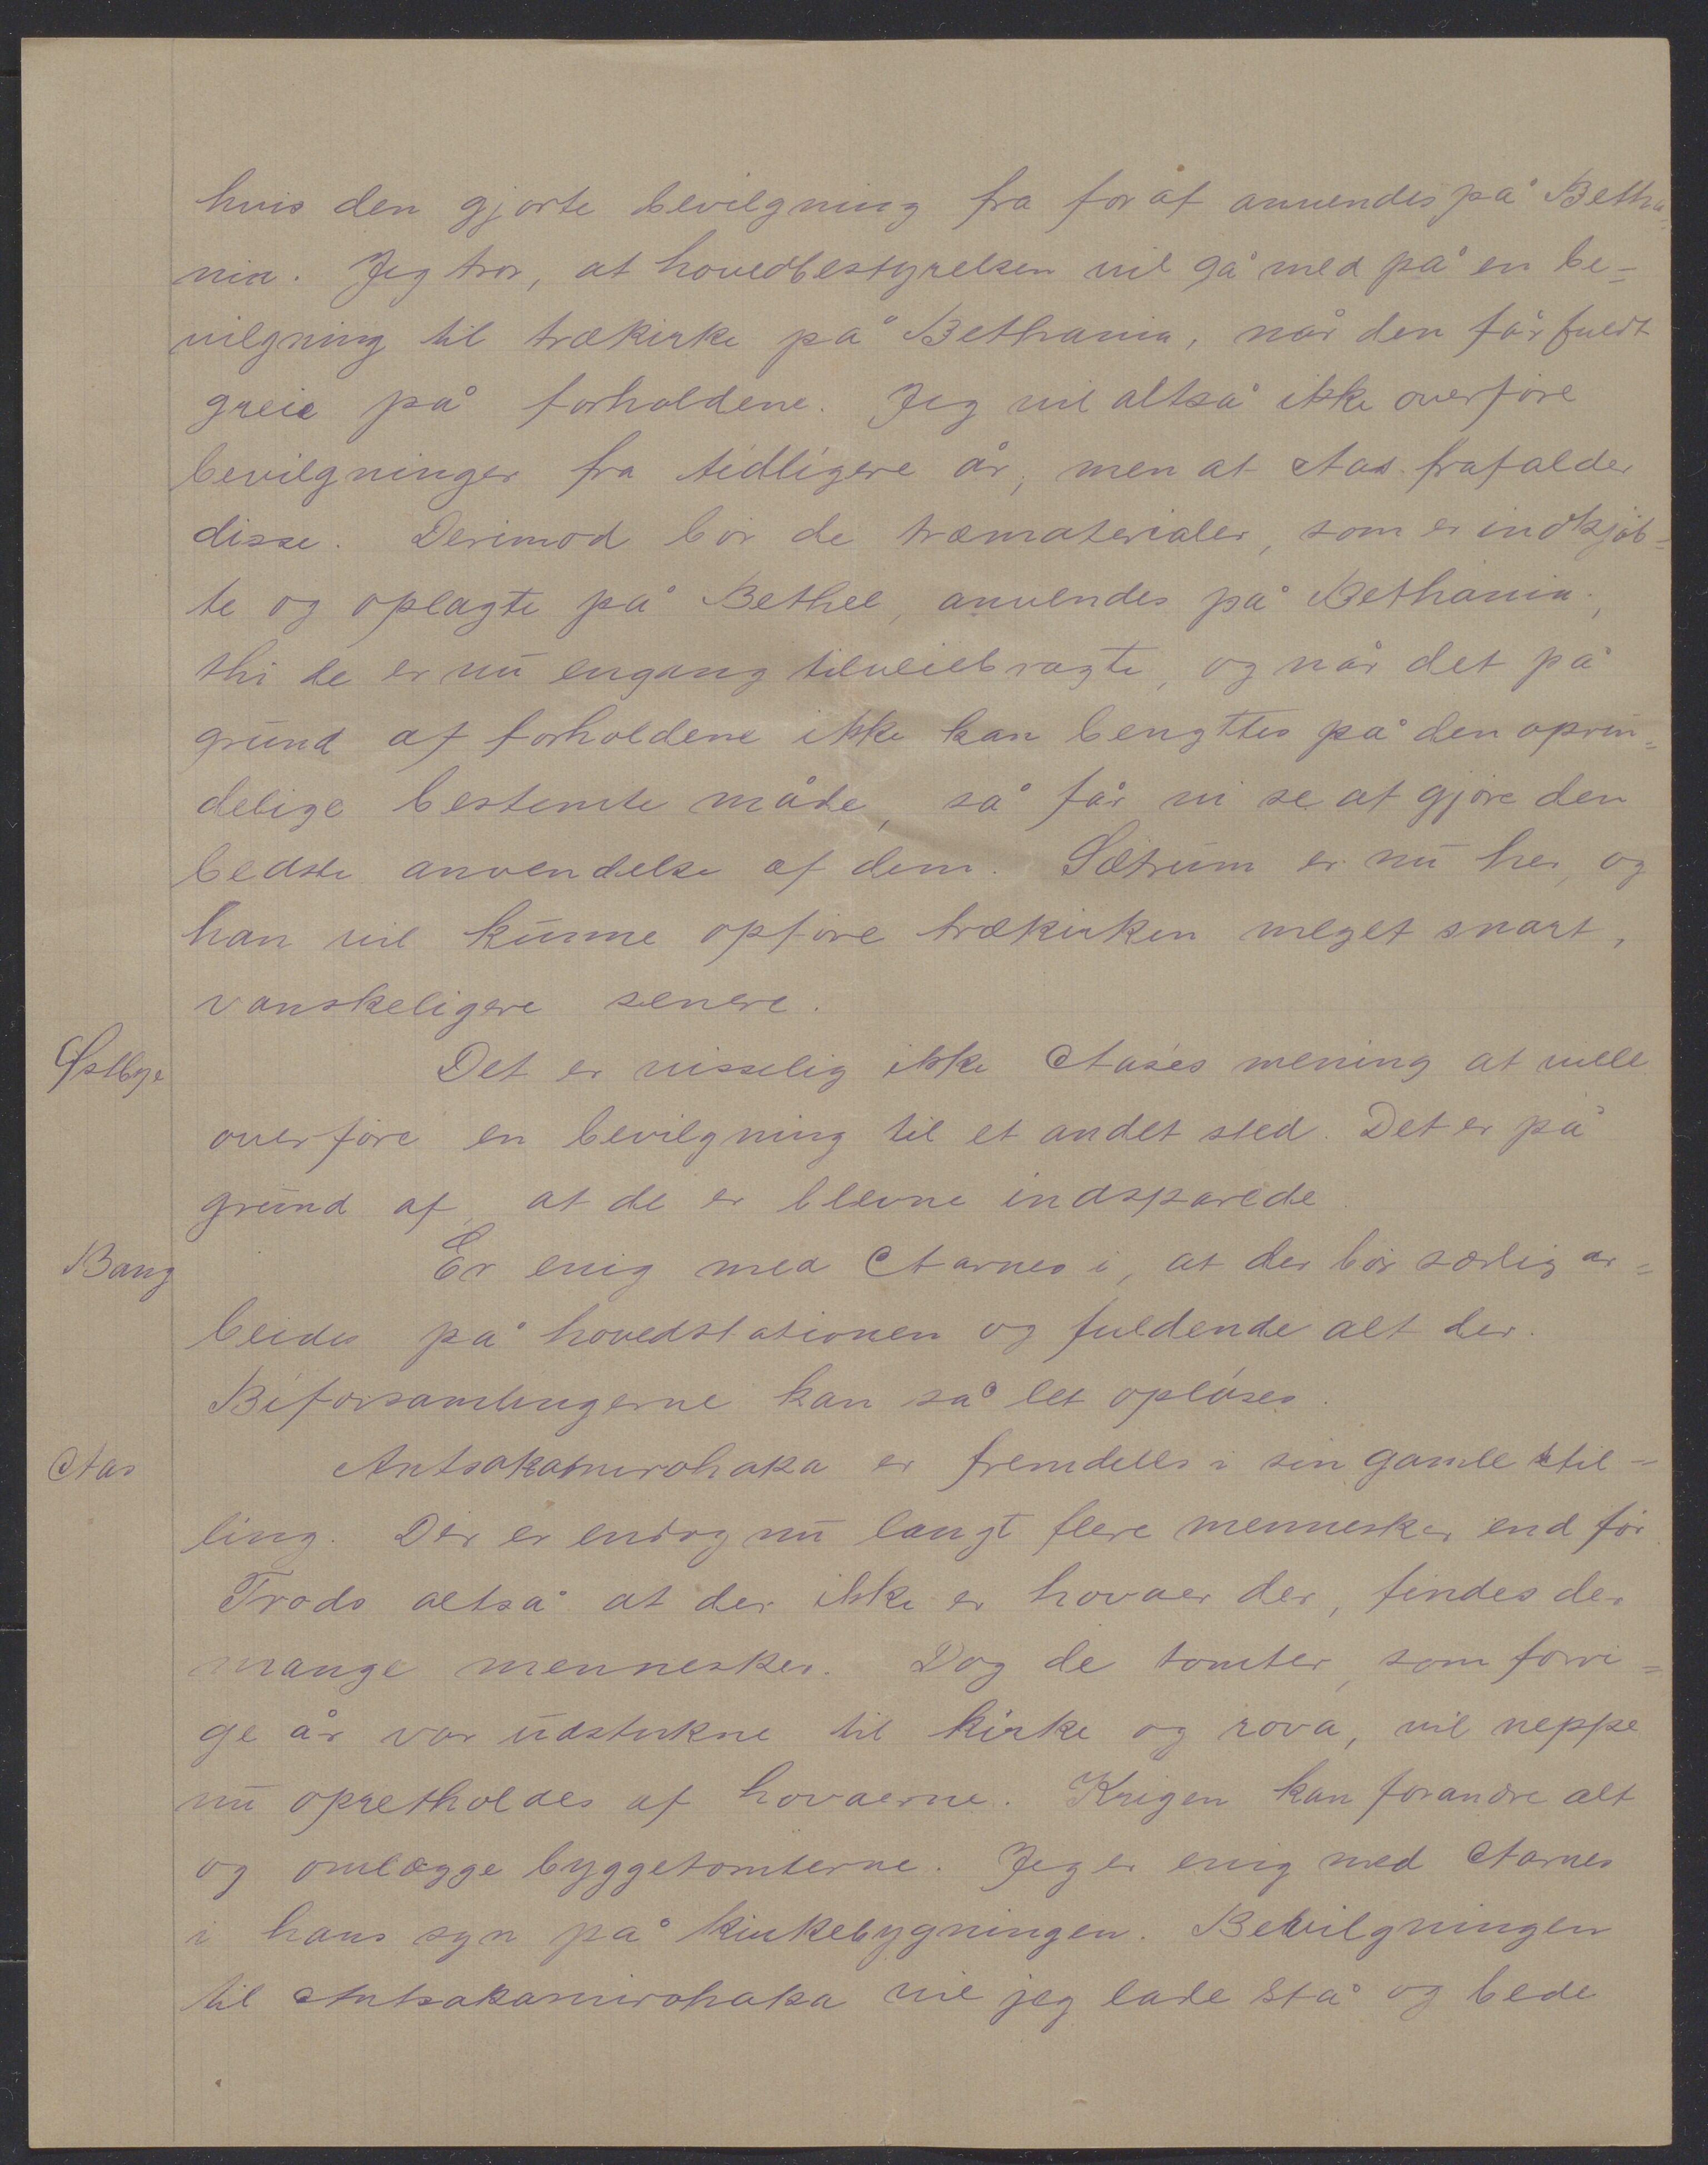 hvis den gjorte bevilgning fra for af anvendes på Betha-
nia. Jeg tror, at hovedbestyrelsen vil gå med på en be-
vilgning til trækirke på Bethania, når den får fuldt
greie på forholdene. Jeg vil altså ikke overføre
bevilgninger fra tidligere år, men at Aas frafalder
disse. Derimod bør de træmaterialer, som er indkjøb-
te og oplagte på Bethel, anvendes på Bethania;
thi de er nu engang tilveiebragte, og når det på
grund af forholdene ikke kan benyttes på den oprin-
delige bestemte måde, så får vi se at gjøre den
bedste anvendelse af dem. Sætrum er nu her, og
han vil kunne opføre trækirken meget snart,
vanskeligere senere.
Østbye Det er visselig ikke Aases mening at ville
overføre en bevilgning til et andet sted. Det er på
grund af, at de er blevne indsparede.
Bang Er enig med Aarnes i, at der bør særlig ar-
beides på hovedstationen og fuldende alt der.
Biforsamlingerne kan så let opløses.
Aas Antsakamirohaka er fremdeles i sin gamle stil-
ling. Der er endog nu langt flere mennesker end før
Trods altså at der ikke er hovaer der, findes der
mange mennesker. Dog de tomter, som forri-
ge år var udstukne til kirke og rova, vil neppe
nu opretholdes af hovaerne. Krigen kan forandre alt
og omlægge byggetomterne. Jeg er enig med Aarnes
i hans syn på kirkebygningen. Bevilgningen
til Antsakamirohaka vil jeg lade stå og bede